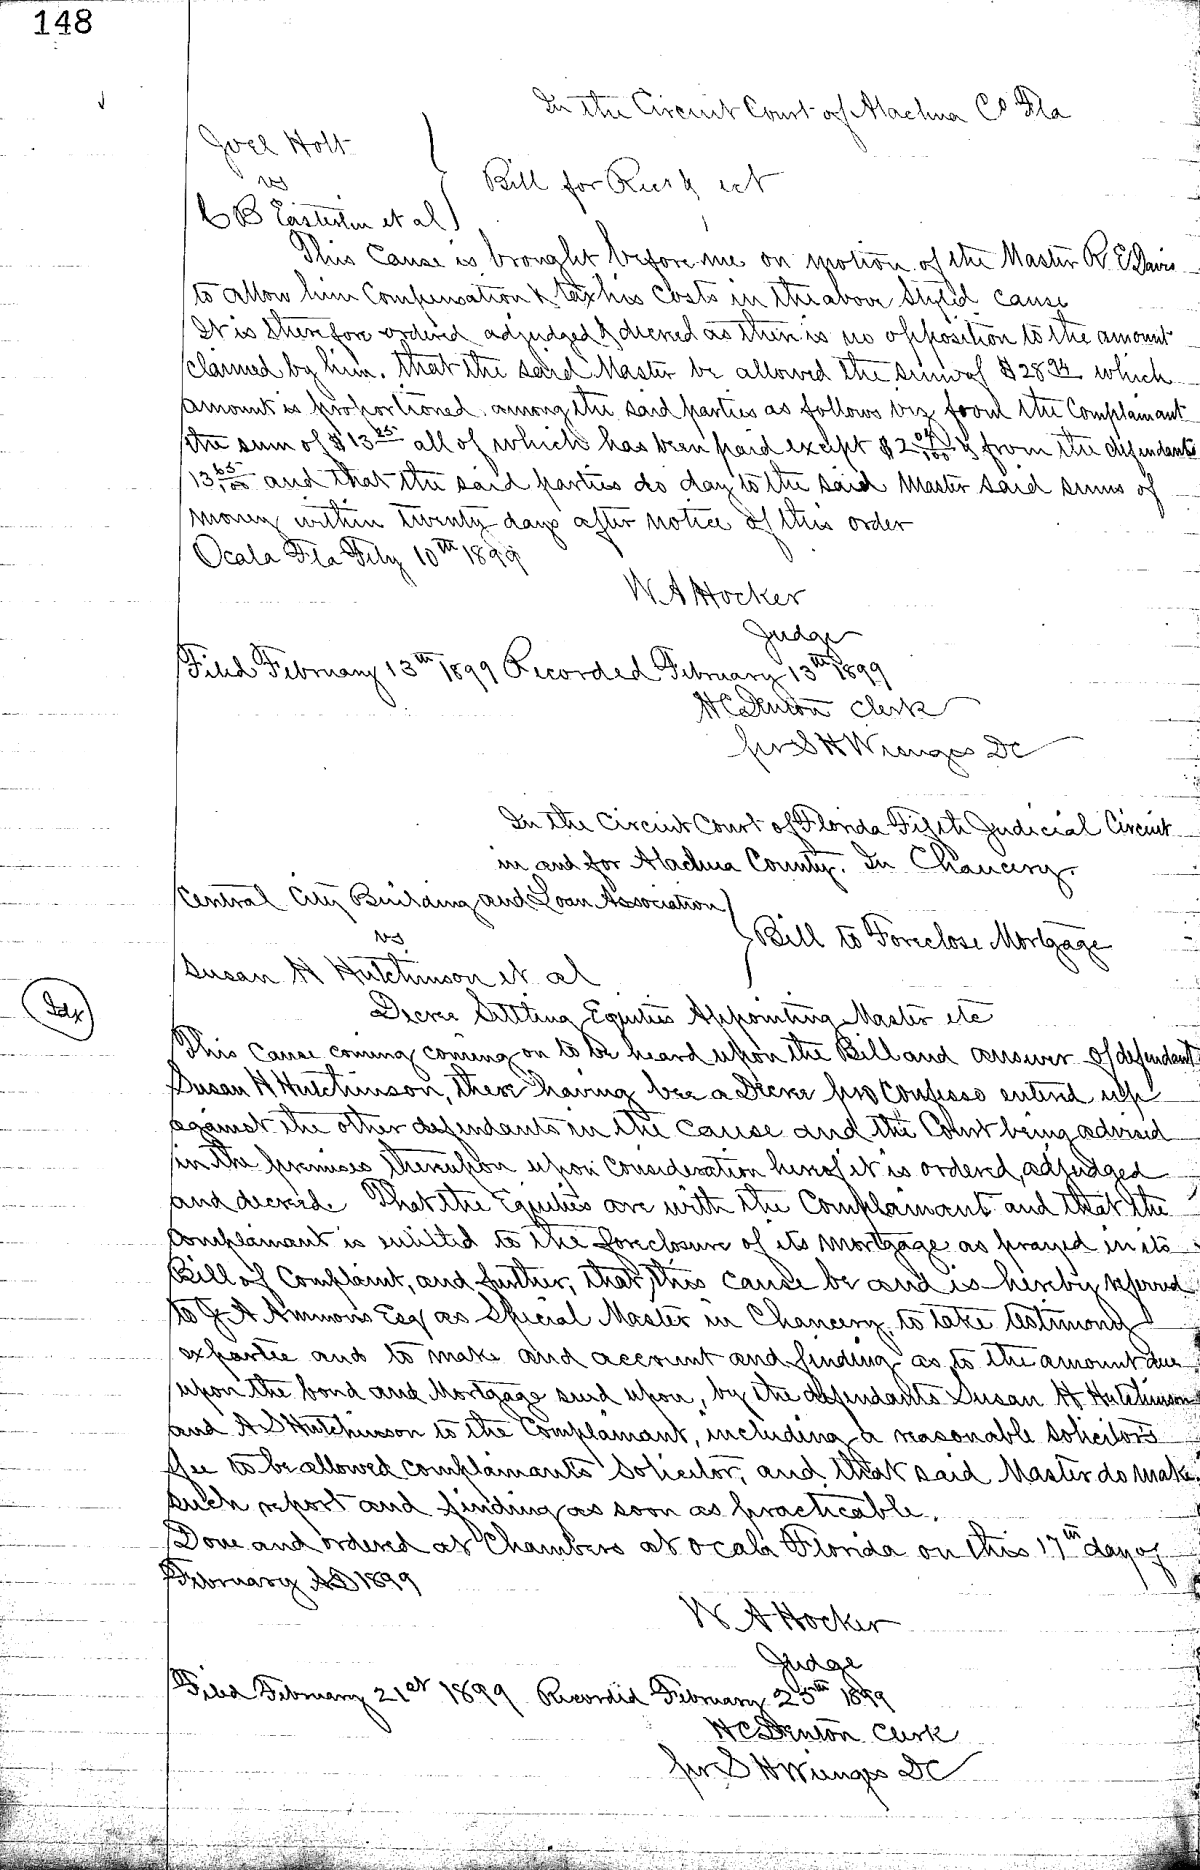 148
In the Circuit Court of Alachua Co Fla
Joel Holt
vs
Bill for
C B Easterlin et al
This Cause is brought before me on motion of the Master R E Davis
to allow him Compensation & tax his Costs in the above Styled cause
It is therefore ordered adjudged & decreed as there is no opposition to the amount
claimed by him. that the said Master be allowed the sum of which
amount is proportioned among the said parties as follows viz from the Complainant
the sum of $13 25 all of which has been paid except & from the defendants
13 65/100 and that the said parties do day to the said Master said sums of
money within twenty days after notice of this order
Ocala Fla Feby 10th 1899
W A Hocker
Judge
Filed February 13th 1899 Recorded February 13th 1899
H C Denton Clerk
per S H Wienges DC
In the Circuit Court of Florida Fifth Judicial Circuit
in and for Alachua County. In Chancery.
Central City Building and Loan Association
vs
Bill to Foreclose Mortgage
Susan H Hutchinson et al
Idx
Decree Settling Equities Appointing Master etc
This cause coming coming on to be heard upon the Bill and answer of defendant
Susan H Hutchinson, there having bee a Decree pro Confesso entered up
against the other defendants in the cause and the Court being advised
in the premises thereupon upon consideration hereof it is ordered, adjudged
and decreed. That the Equities are with the Complainant and that the
complainant is entitled to the foreclosure of its mortgage as prayed in its
Bill of Complaint, and further, that this cause be and is hereby referred
to J. A Ammons Esq as Special Master in Chancery, to take testimony
expartee and to make and account and finding as to the amount due
upon the bond and Mortgage sued upon, by the defendants Susan H Hutchinson
and A S Hutchinson to the Complainant, including a reasonable solicitors
fee to be allowed complainants solicitor, and that said Master do make
such report and finding as soon as practicable.
Done and ordered at Chambers at Ocala Florida on this 17th day of
February AD 1899
W. A Hocker
Judge
Filed February 21st 1899 Recorded February 25th 1899
H C Denton Clerk
per S H Wienges DC